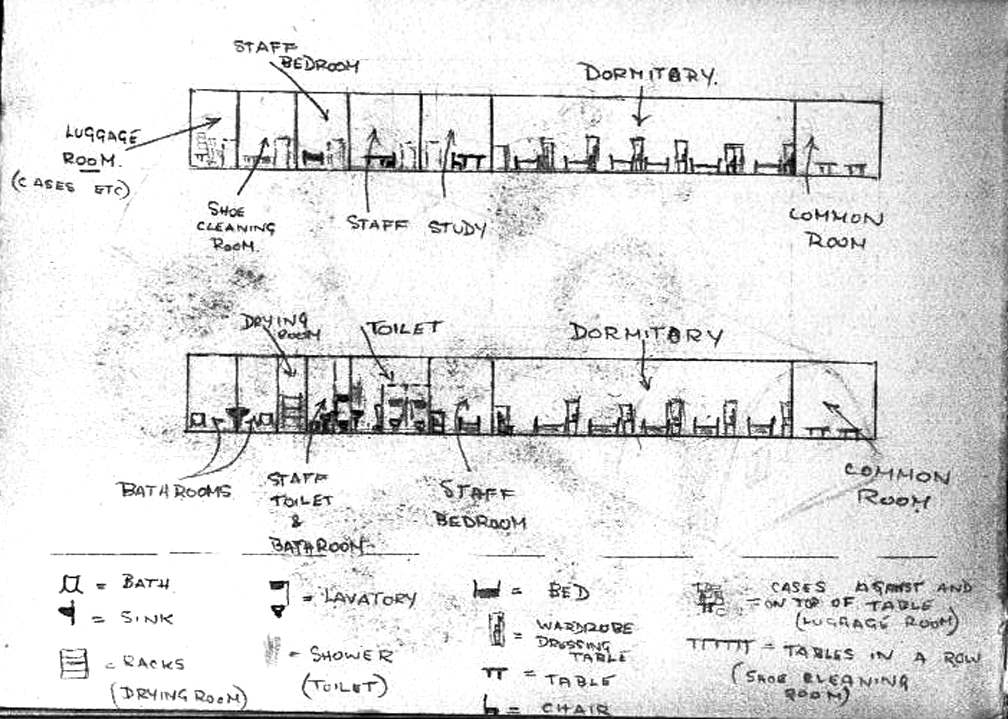 STAFF
BEDROOM
DORMITORY.
LUGGAGE
ROOM.
(CASES ETC)
SHOE
CLEANING
ROOM.
STAFF STUDY
COMMON
ROOM
DRYING
ROOM
TOILET
DORMITORY
BATHROOMS
STAFF
TOILET
&
BATHROOM
STAFF
BEDROOM
COMMON
ROOM
= BATH
= SINK
= RACKS
(DRYING ROOM)
= LAVATORY
= SHOWER
(TOILET)
= BED
= WARDROBE
DRESSING
TABLE
= TABLE
= CHAIR
CASES AGAINST AND
= ON TOP OF TABLE
(LUGGAGE ROOM)
= TABLES IN A ROW
(SHOE CLEANING
ROOM)